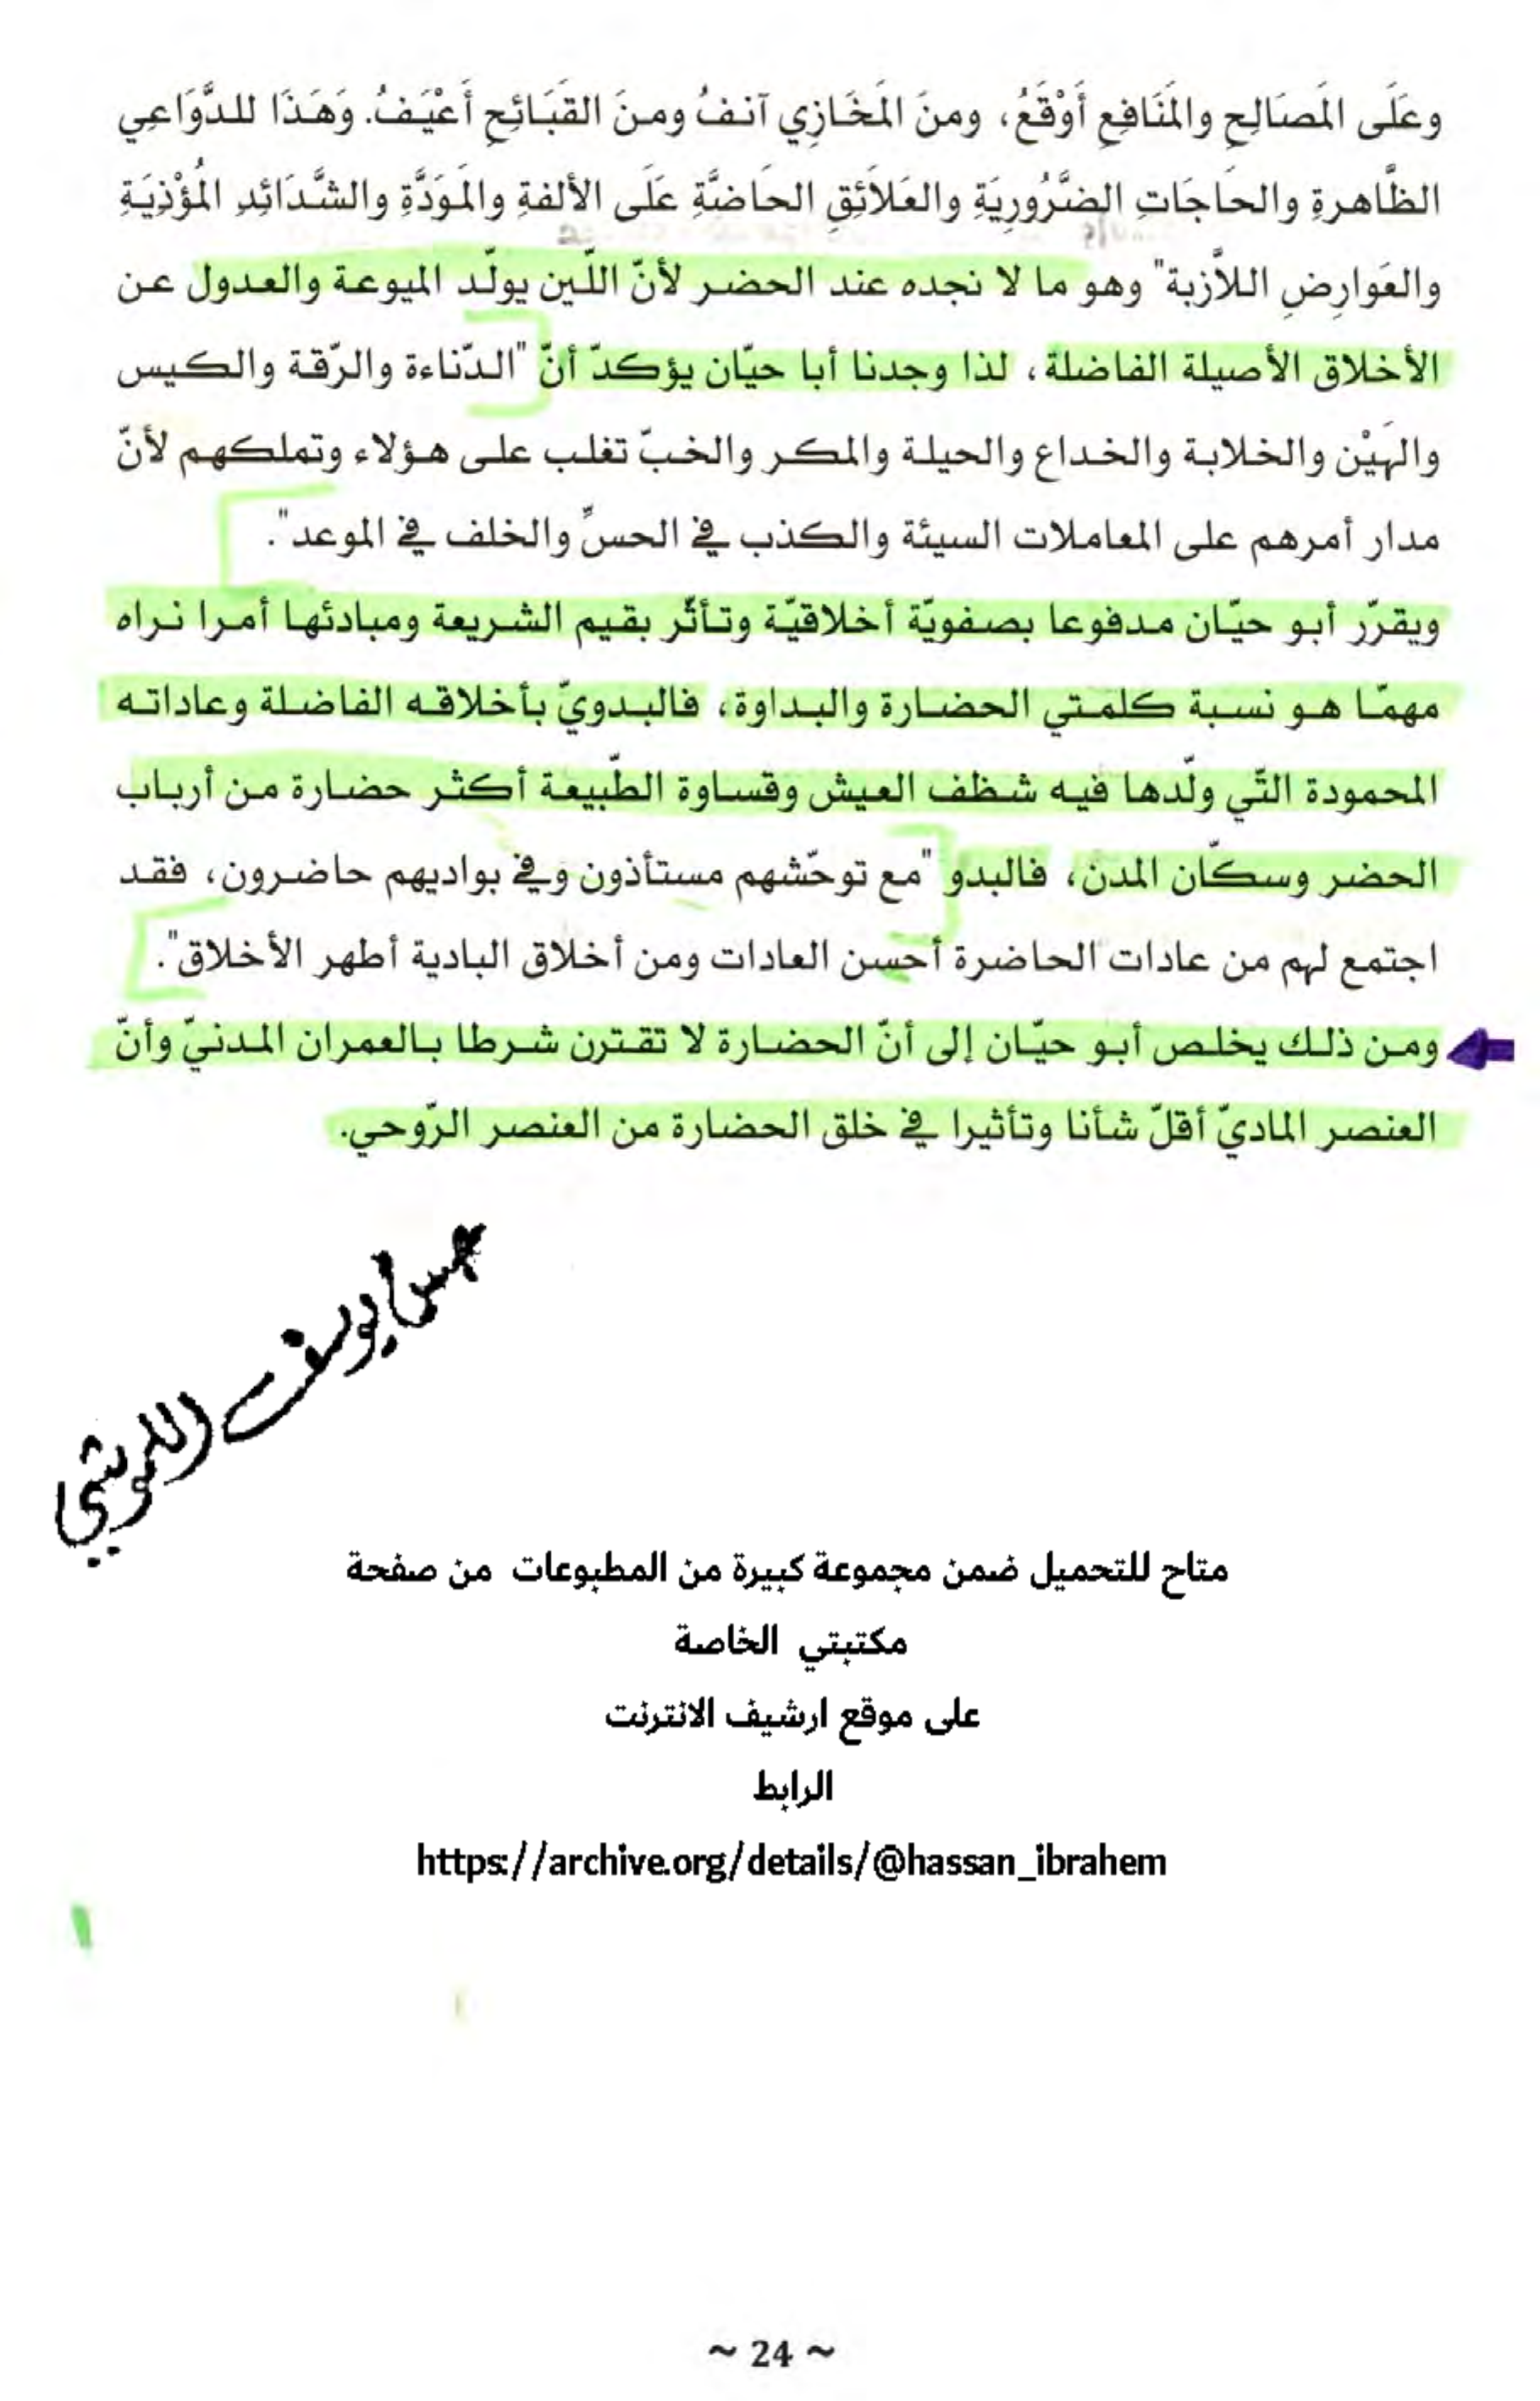 وعَلَى المَصَالِحِ والمَنَافِعِ أَوْقَعُ، ومنَ المَخَازِي آنفُ ومنَ القَبَائِحِ أَعْيَفُ. وَهَذَا للدَّوَاعِي
الظَّاهرةِ والحَاجَاتِ الضَّرُورِيَةِ والعَلاَئِقِ الحَاضَّةِ عَلَى الألفةِ والمَوَدَّةِ والشَّدَائِدِ المُؤْذِيَةِ
والعَوارِضِ اللاَّزبة" وهو ما لا نجده عند الحضر لأنّ اللّين يولّد الميوعة والعدول عن
الأخلاق الأصيلة الفاضلة، لذا وجدنا أبا حيّان يؤكدّ أنّ "الدّناءة والرّقة والكيس
والهَيْن والخلابة والخداع والحيلة والمكر والخبّ تغلب على هؤلاء وتملكهم لأنّ
مدار أمرهم على المعاملات السيئة والكذب في الحسِّ والخلف في الموعد".
ويقرّر أبو حيّان مدفوعا بصفويّة أخلاقيّة وتأثّر بقيم الشريعة ومبادئها أمرا نراه
مهمّا هو نسبة كلمتي الحضارة والبداوة، فالبدويّ بأخلاقه الفاضلة وعاداته
المحمودة التّي ولّدها فيه شظف العيش وقساوة الطّبيعة أكثر حضارة من أرباب
الحضر وسكّان المدن، فالبدو "مع توحّشهم مستأذون وفي بواديهم حاضرون، فقد
اجتمع لهم من عادات الحاضرة أحسن العادات ومن أخلاق البادية أطهر الأخلاق".
ومن ذلك يخلص أبو حيّان إلى أنّ الحضارة لا تقترن شرطا بالعمران المدنيّ وأنّ
العنصر الماديّ أقلّ شأنا وتأثيرا في خلق الحضارة من العنصر الرّوحي.
متاح للتحميل ضمن مجموعة كبيرة من المطبوعات من صفحة
مكتبتي الخاصة
على موقع ارشيف الانترنت
الرابط
https://archive.org/details/@hassan_ibrahem
~ 24 ~